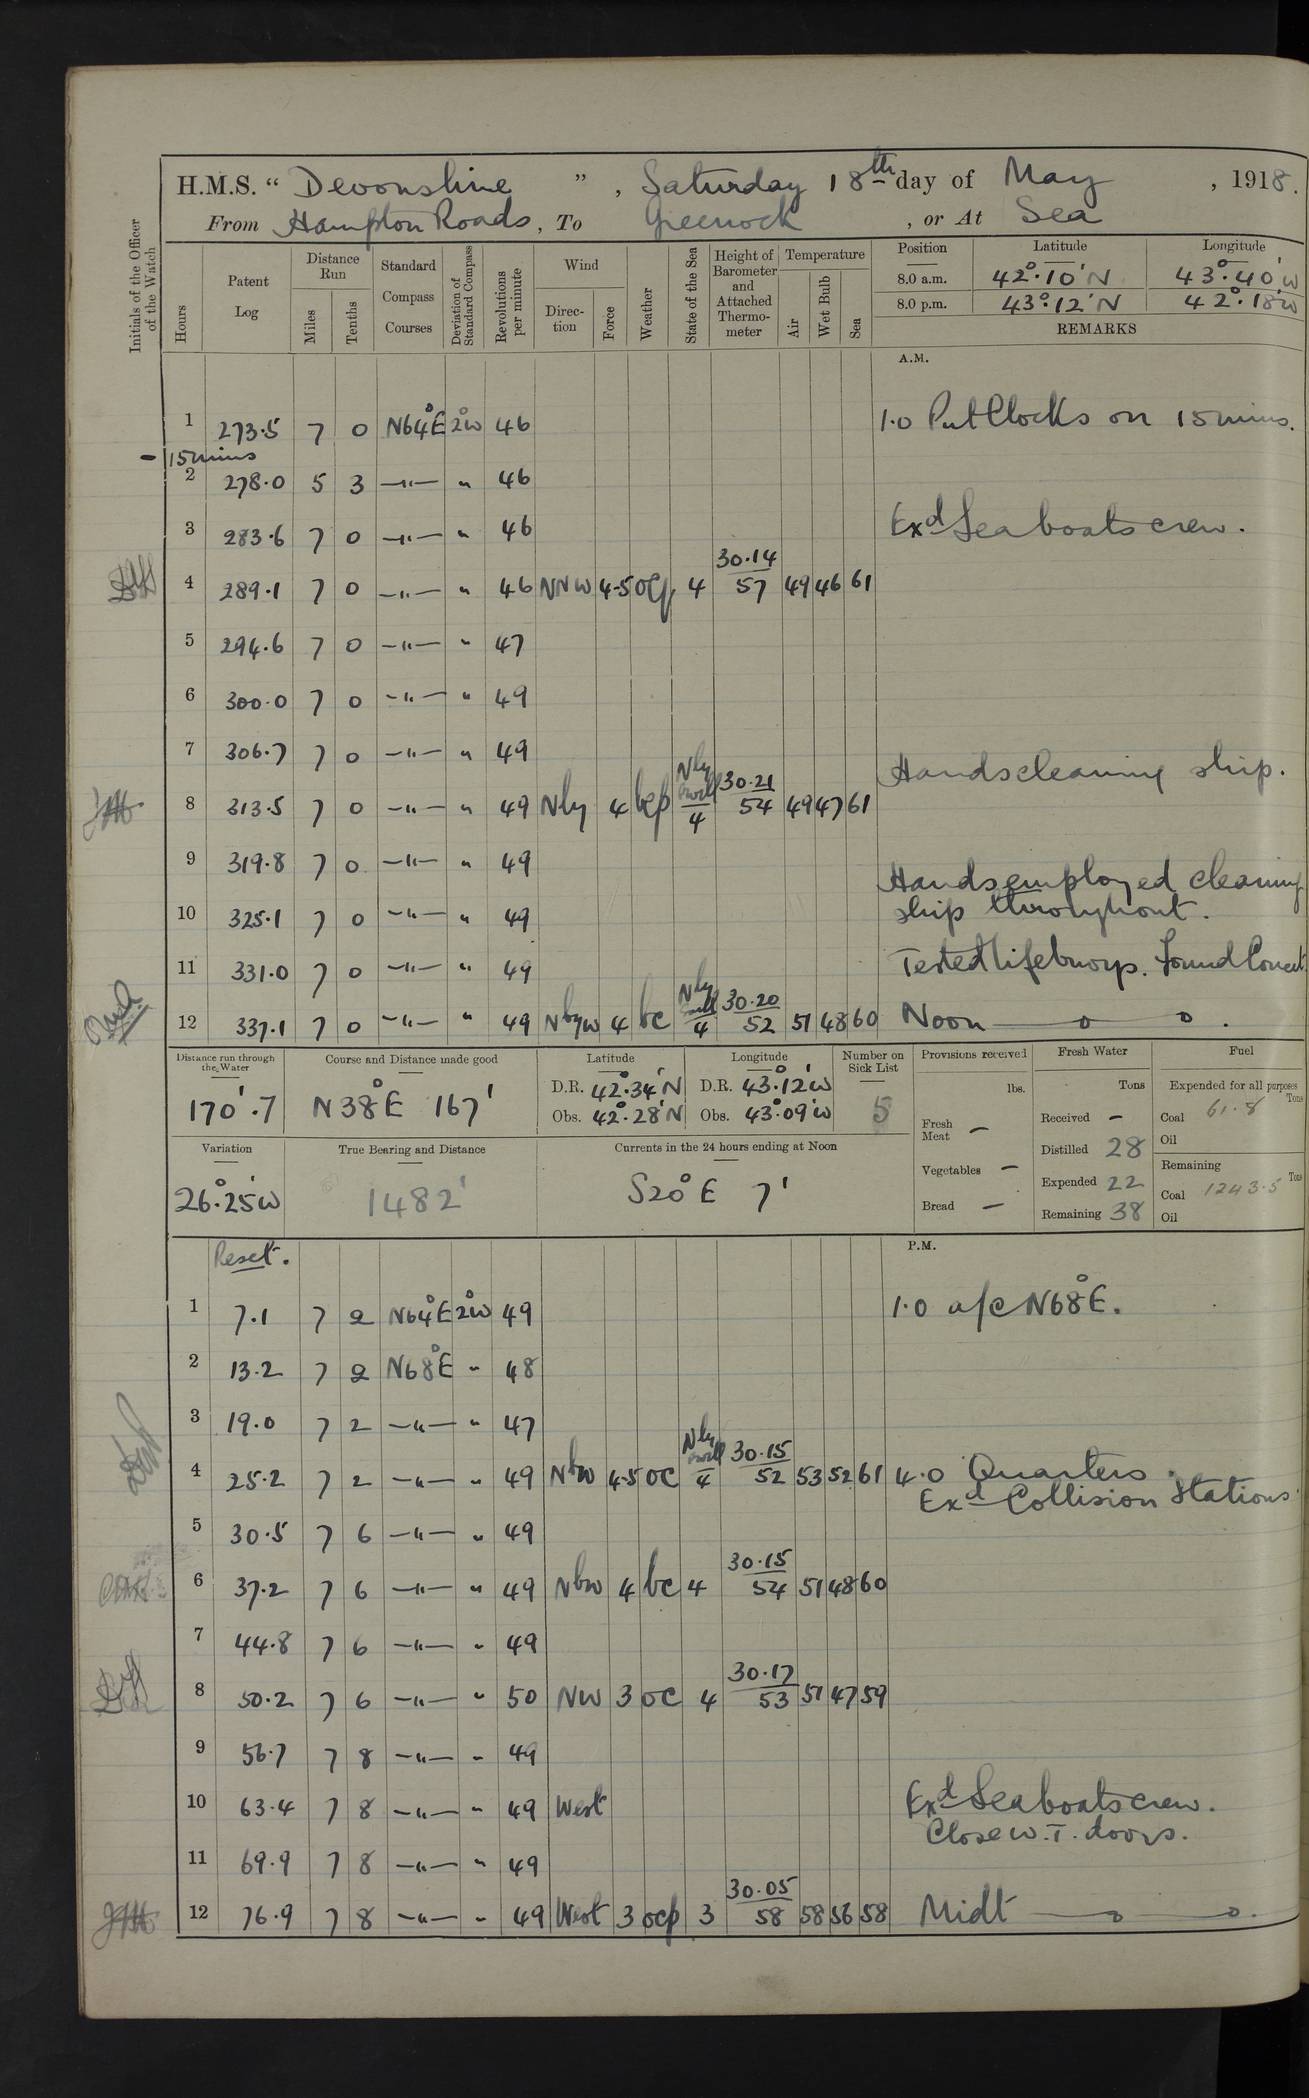 H.M.S. “ Devonshire ” , Saturday 18th day of May , 1918.
From Hampton Roads , To Greenock , or At Sea
Initials of the Officer of the Watch
Hours
Patent Log
Distance Run
Miles Tenths
Standard Compass Courses
Deviation of Standard Compass
Revolutions per minute
Wind
Direction Force
Weather
State of the Sea
Height of Barometer and Attached Thermometer
Temperature
Air Wet Bulb Sea
Position Latitude Longitude
8.0 a.m. 42°.10' N 43°.40' W
8.0 p.m. 43°.12' N 42°.18' W
REMARKS
A.M.
1 273.5 7 0 N64°E 2°W 46 1.0 Put Clocks on 15 mins.
- 15 mins
2 278.0 5 3 —"— " 46
3 283.6 7 0 —"— " 46 Exd Sea boats crew.
30.14
4 289.1 7 0 —"— " 46 NNW 4-5 ocq 4 57 49 46 61
5 294.6 7 0 —"— " 47
6 300.0 7 0 —"— " 49
7 306.7 7 0 —"— " 49 Hands cleaning ship.
Nly swell 30.21
8 313.5 7 0 —"— " 49 Nly 4 bcp 4 54 49 47 61
9 319.8 7 0 —"— " 49 Hands employed cleaning
10 325.1 7 0 —"— " 49 ship throughout.
11 331.0 7 0 —"— " 49 Tested lifebuoys. Found Correct.
Nly swell 30.20
12 337.1 7 0 —"— " 49 NbyW 4 bc 4 52 51 48 60 Noon
Distance run through the Water
170'.7
Course and Distance made good
N 38° E 167'
Latitude
D.R. 42°.34' N
Obs. 42°.28' N
Longitude
D.R. 43°.12' W
Obs. 43°.09' W
Number on Sick List
5
Provisions received
lbs.
Fresh Meat —
Vegetables —
Bread —
Fresh Water
Tons
Received —
Distilled 28
Expended 22
Remaining 38
Fuel
Expended for all purposes
Tons
Coal 61.8
Oil
Remaining
Tons
Coal 1243.5
Oil
Variation
26°.25' W
True Bearing and Distance
1482'
Currents in the 24 hours ending at Noon
S20° E 7'
Reset.
P.M.
1 7.1 7 2 N64°E 2°W 49 1.0 a/c N68°E.
2 13.2 7 2 N68°E " 48
3 19.0 7 2 —"— " 47
Nly swell 30.15
4 25.2 7 2 —"— " 49 NbW 4-5 oc 4 52 53 52 61 4.0 Quarters.
Exd Collision Stations.
5 30.5 7 6 —"— " 49
30.15
6 37.2 7 6 —"— " 49 NbW 4 bc 4 54 51 48 60
7 44.8 7 6 —"— " 49
30.17
8 50.2 7 6 —"— " 50 NW 3 oc 4 53 51 47 59
9 56.7 7 8 —"— " 49
10 63.4 7 8 —"— " 49 West Exd Sea boats crew.
Close W.T. doors.
11 69.9 7 8 —"— " 49
30.05
12 76.9 7 8 —"— " 49 West 3 ocp 3 58 58 56 58 Midt